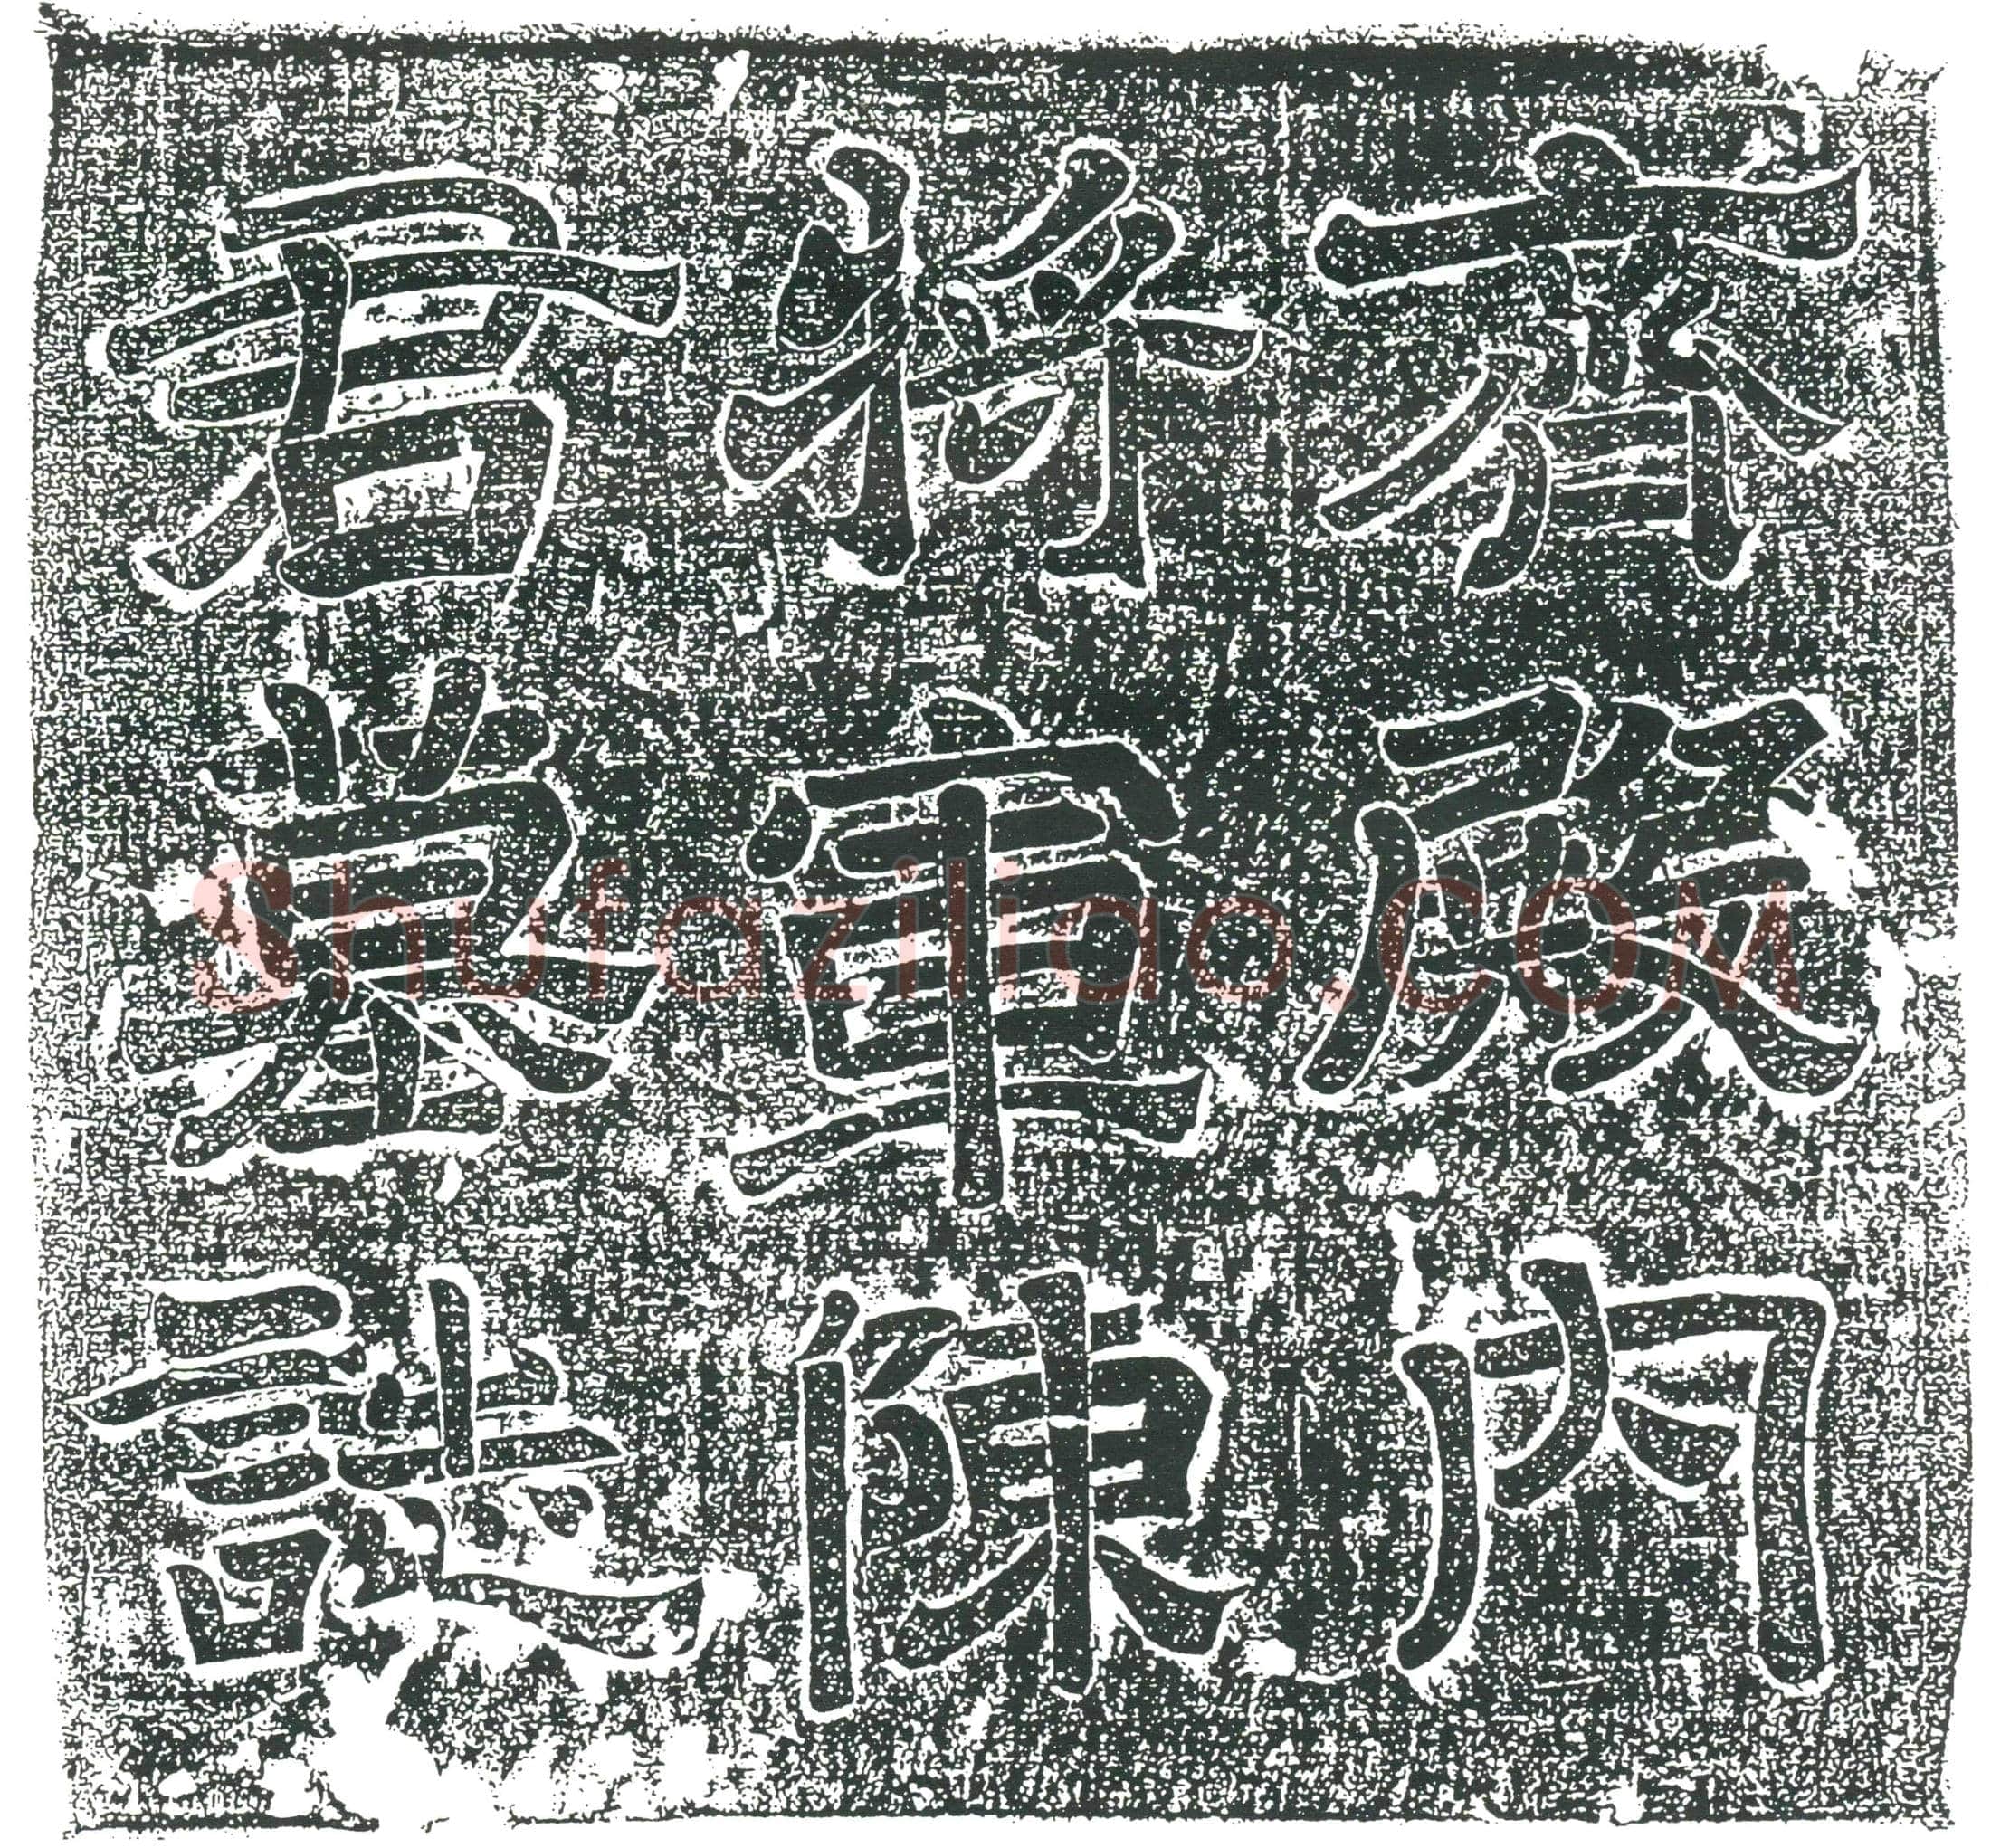 齊殿內
將軍陳
君墓誌
Shufaziliao.COM